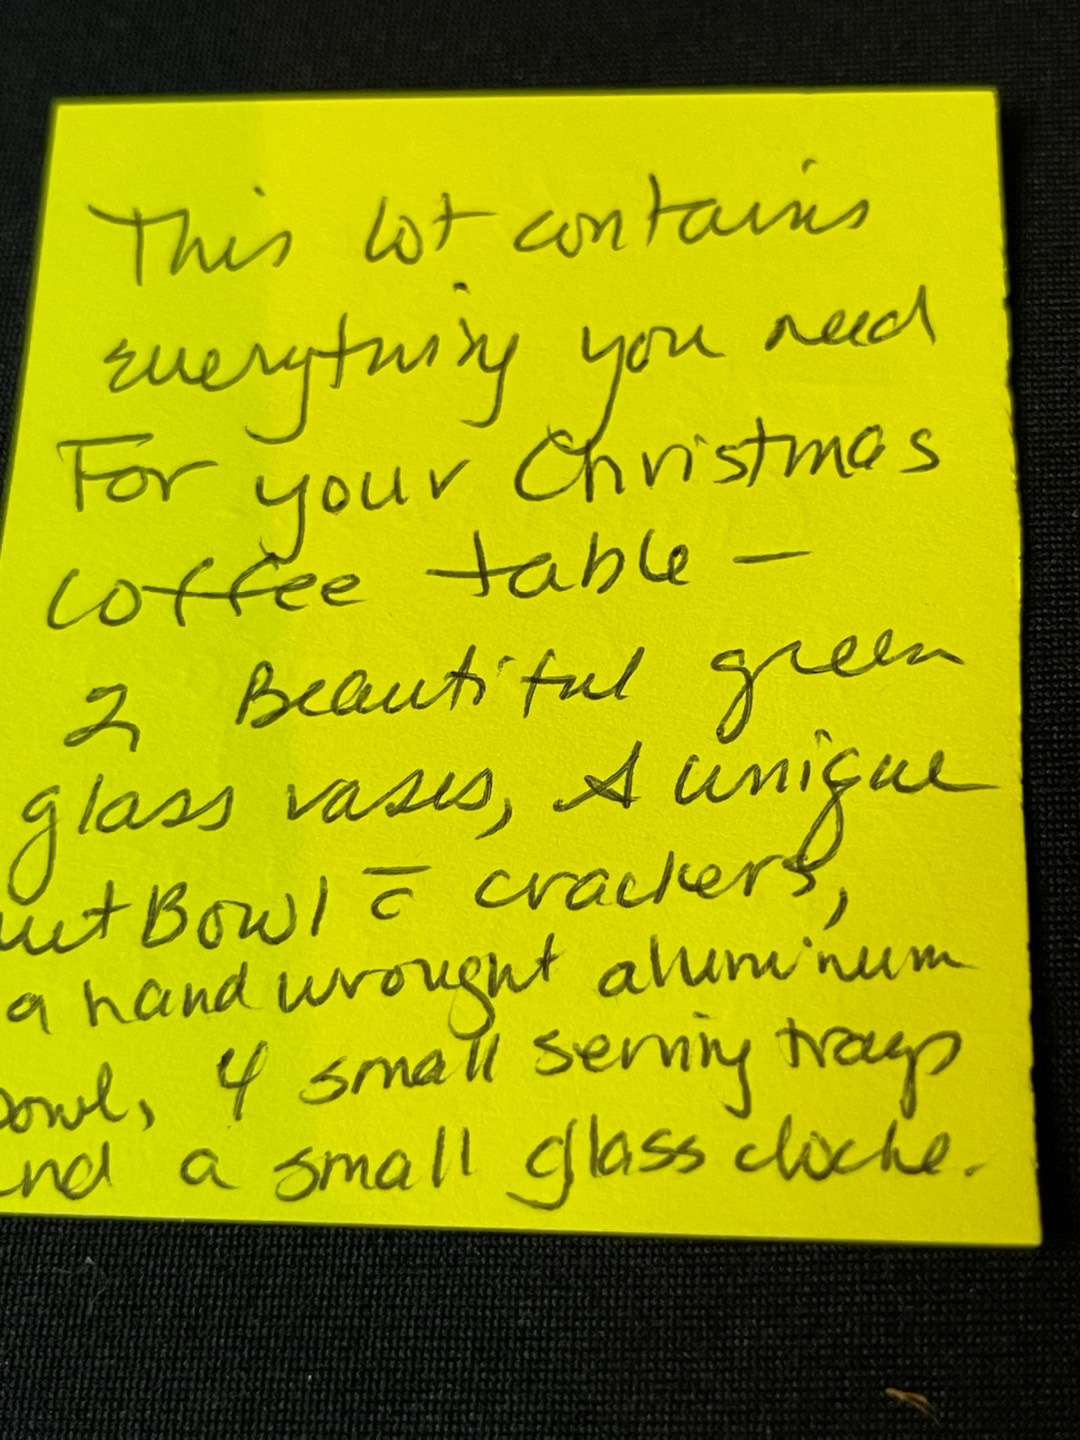 This lot contains
everything you need
For your Christmas
coffee table —
2 Beautiful green
glass vases, A unique
nut Bowl c̄ crackers,
a hand wrought aluminum
bowl, 4 small serving trays
and a small glass cloche.